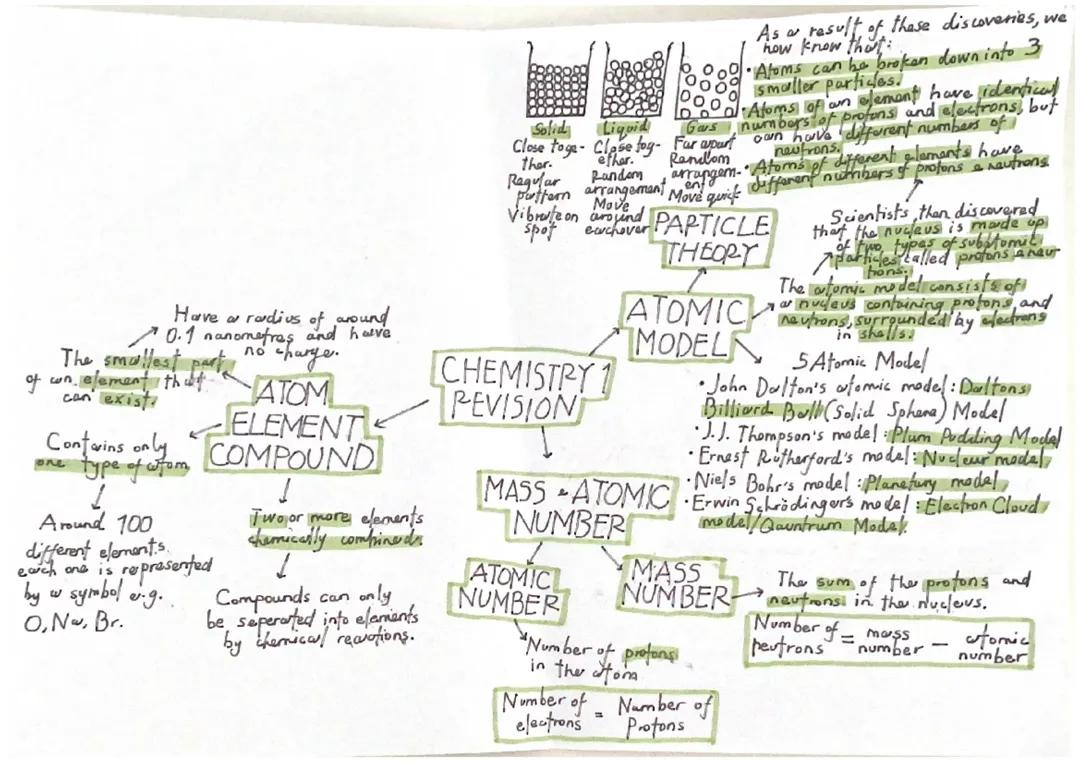 As a result of these discoveries, we
now know that:
• Atoms can be broken down into 3
smaller particles.
• Atoms of an element have identical
numbers of protons and electrons, but
can have different numbers of
neutrons.
• Atoms of different elements have
different numbers of protons & neutrons
Solid
Close toge-
ther.
Regular
pattern
Vibrate on
spot
Liquid
Close tog-
ether.
Random
arrangement
Move
around
eachover
Gas
Far apart
Random
arrangem-
ent
Move quick
PARTICLE
THEORY
Scientists then discovered
that the nucleus is made up
of two types of subatomic
particles called protons & neu-
trons.
The atomic model consists of
a nucleus containing protons and
neutrons, surrounded by electrons
in shells.
ATOMIC
MODEL
5 Atomic Model
• John Dalton's atomic model: Daltons
Billiard Ball (Solid Sphere) Model
• J.J. Thompson's model: Plum Pudding Model
• Ernest Rutherford's model: Nuclear model
• Niels Bohr's model: Planetary model
• Erwin Schrödinger's model: Electron Cloud
model/Qauntrum Model.
CHEMISTRY 1
REVISION
Have a radius of around
0.1 nanometres and have
no charge.
The smallest part
of an element that
can exist.
ATOM
ELEMENT
COMPOUND
Contains only
one type of atom
Around 100
different elements.
each one is represented
by a symbol e.g.
O, Na, Br.
Two or more elements
chemically combined.
Compounds can only
be seperated into elements
by chemical reactions.
MASS & ATOMIC
NUMBER
ATOMIC
NUMBER
Number of protons
in the atom
Number of
electrons = Number of
Protons
MASS
NUMBER
The sum of the protons and
neutrons in the nucleus.
Number of
neutrons = mass
number - atomic
number